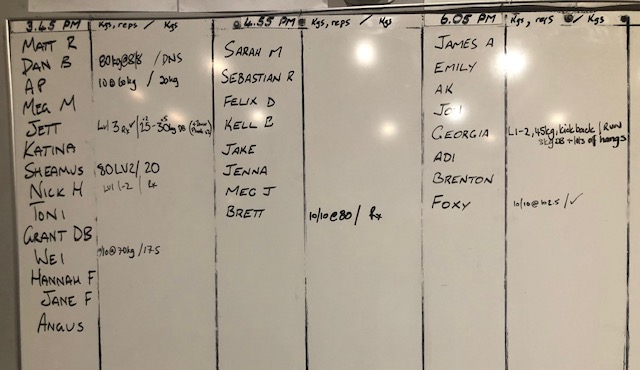 3.45 PM Kgs, reps / Kgs 4.55 PM Kgs, reps / Kgs 6.05 PM Kgs, reps / Kgs
MATT R
DAN B 80kg@8/8 / DNS
AP 10@60kg / 20kg
MEG M
JETT Lvl 3 Rx✓
KATINA
SHEAMUS 80 LV2/ 20
NICK H Lvl 1-2 / Rx
TONI
GRANT DB
WEI 9/10@70kg / 17.5
HANNAH F
JANE F
ANGUS
SARAH M
SEBASTIAN R
FELIX D
KELL B
JAKE
JENNA
MEG J
BRETT 10/10@80 / Rx
JAMES A
EMILY
AK
GEORGIA L1-2, 45kg, kickback / RUN
3kg DB + of hangs
ADI
BRENTON
FOXY 10/10@102.5 / ✓